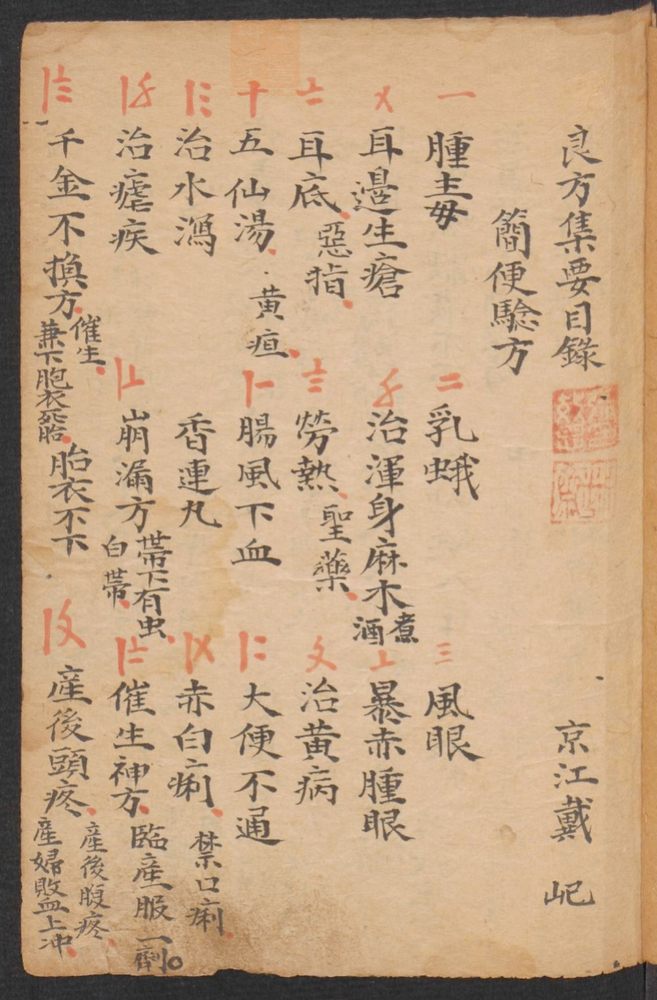 良方集要目錄 京江戴 屺
簡便驗方
一 腫毒 二 乳蛾 三 風眼
〤 耳邊生瘡 〥 治渾身麻木 煮酒 〦 暴赤腫眼
〧 耳底 惡指 〨 勞熱 聖藥 〩 治黃病
十 五仙湯 黃疸 〡一 腸風下血 〡二 大便不通
〡三 治水瀉 香連丸 〡〤 赤白痢 禁口痢
〡〥 治瘧疾 〡〦 崩漏方 帶下有虫 白帶 〡〧 催生神方 臨產服一劑
〡〨 千金不換方 催生 兼下胞衣死胎 胎衣不下 〡〩 產後頭疼 產後腹疼 產婦敗血上冲